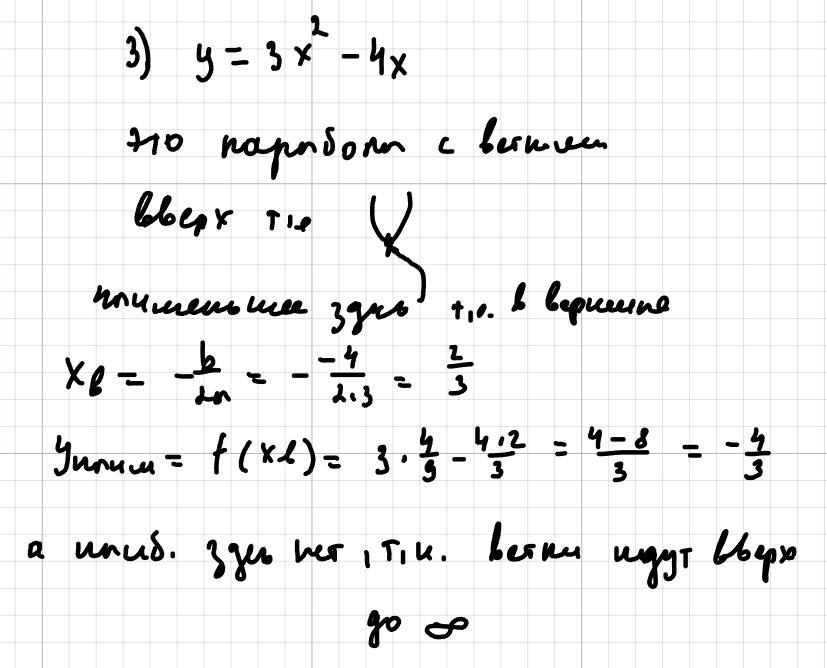 3) y = 3x² - 4x
это парабола с ветками
вверх т.е
наименьшее здесь т.е. в вершине
xв = -b/2a = - -4/2·3 = 2/3
yнаим = f(xв) = 3 · 4/9 - 4·2/3 = 4-8/3 = -4/3
а наиб. здесь нет, т.к. ветки идут вверх
до ∞